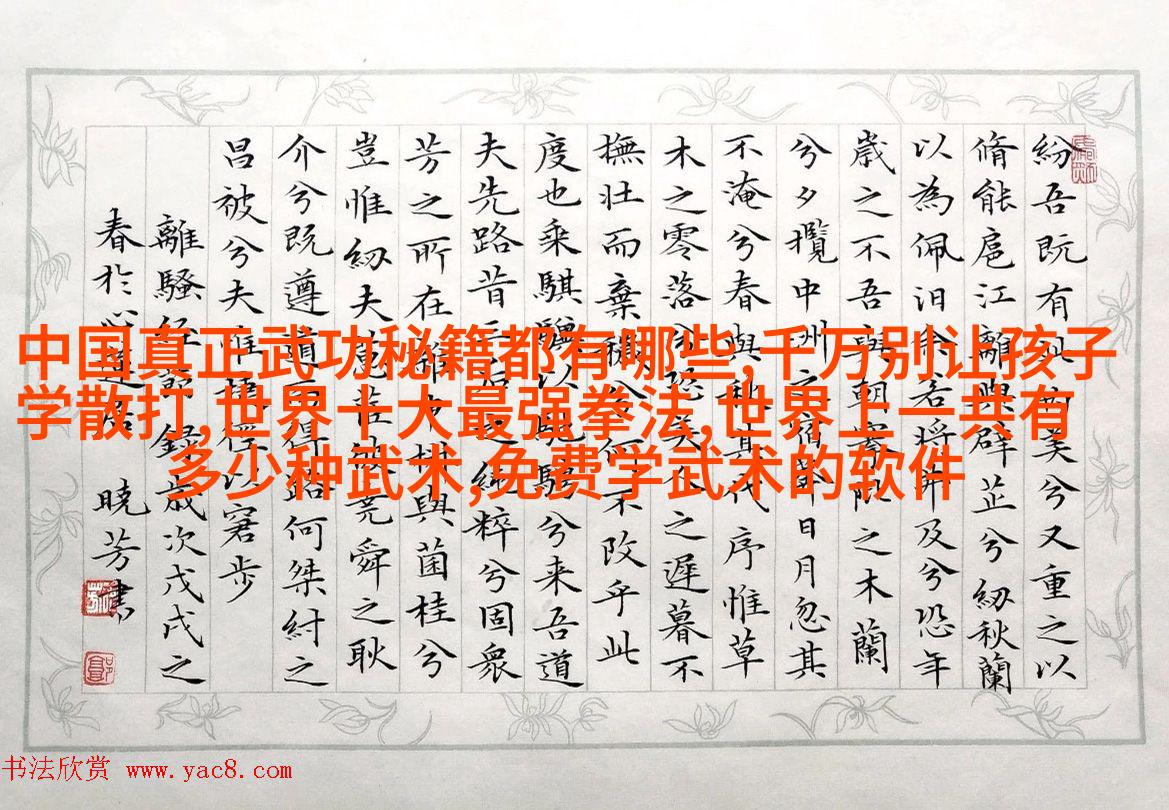 紛吾既有此內美兮又重之以
脩能扈江離與辟芷兮紉秋蘭
以為佩汨余若將弗及兮恐年
歲之不吾與朝搴阰之木蘭
兮夕攬中洲之宿莽日月忽其
不淹兮春與秋其代序惟草
木之零落兮恐美人之遲暮不
撫壯而棄穢兮何不改乎此
度也乘騏驥以馳騁兮来吾道
夫先路昔三后之純粹兮固衆
芳之所在雜申椒與菌桂兮
豈惟紉夫蕙茝彼堯舜之耿
介兮既遵道而得路何桀紂之
昌被兮夫唯捷徑以窘步
離騷經節錄歲次戊戌之
春於心遠居 曉芳書
中国真正武功秘籍都有哪些,千万别让孩子
学散打,世界十大最强拳法,世界上一共有
多少种武术,免费学武术的软件
书法欣赏 www.yac8.com